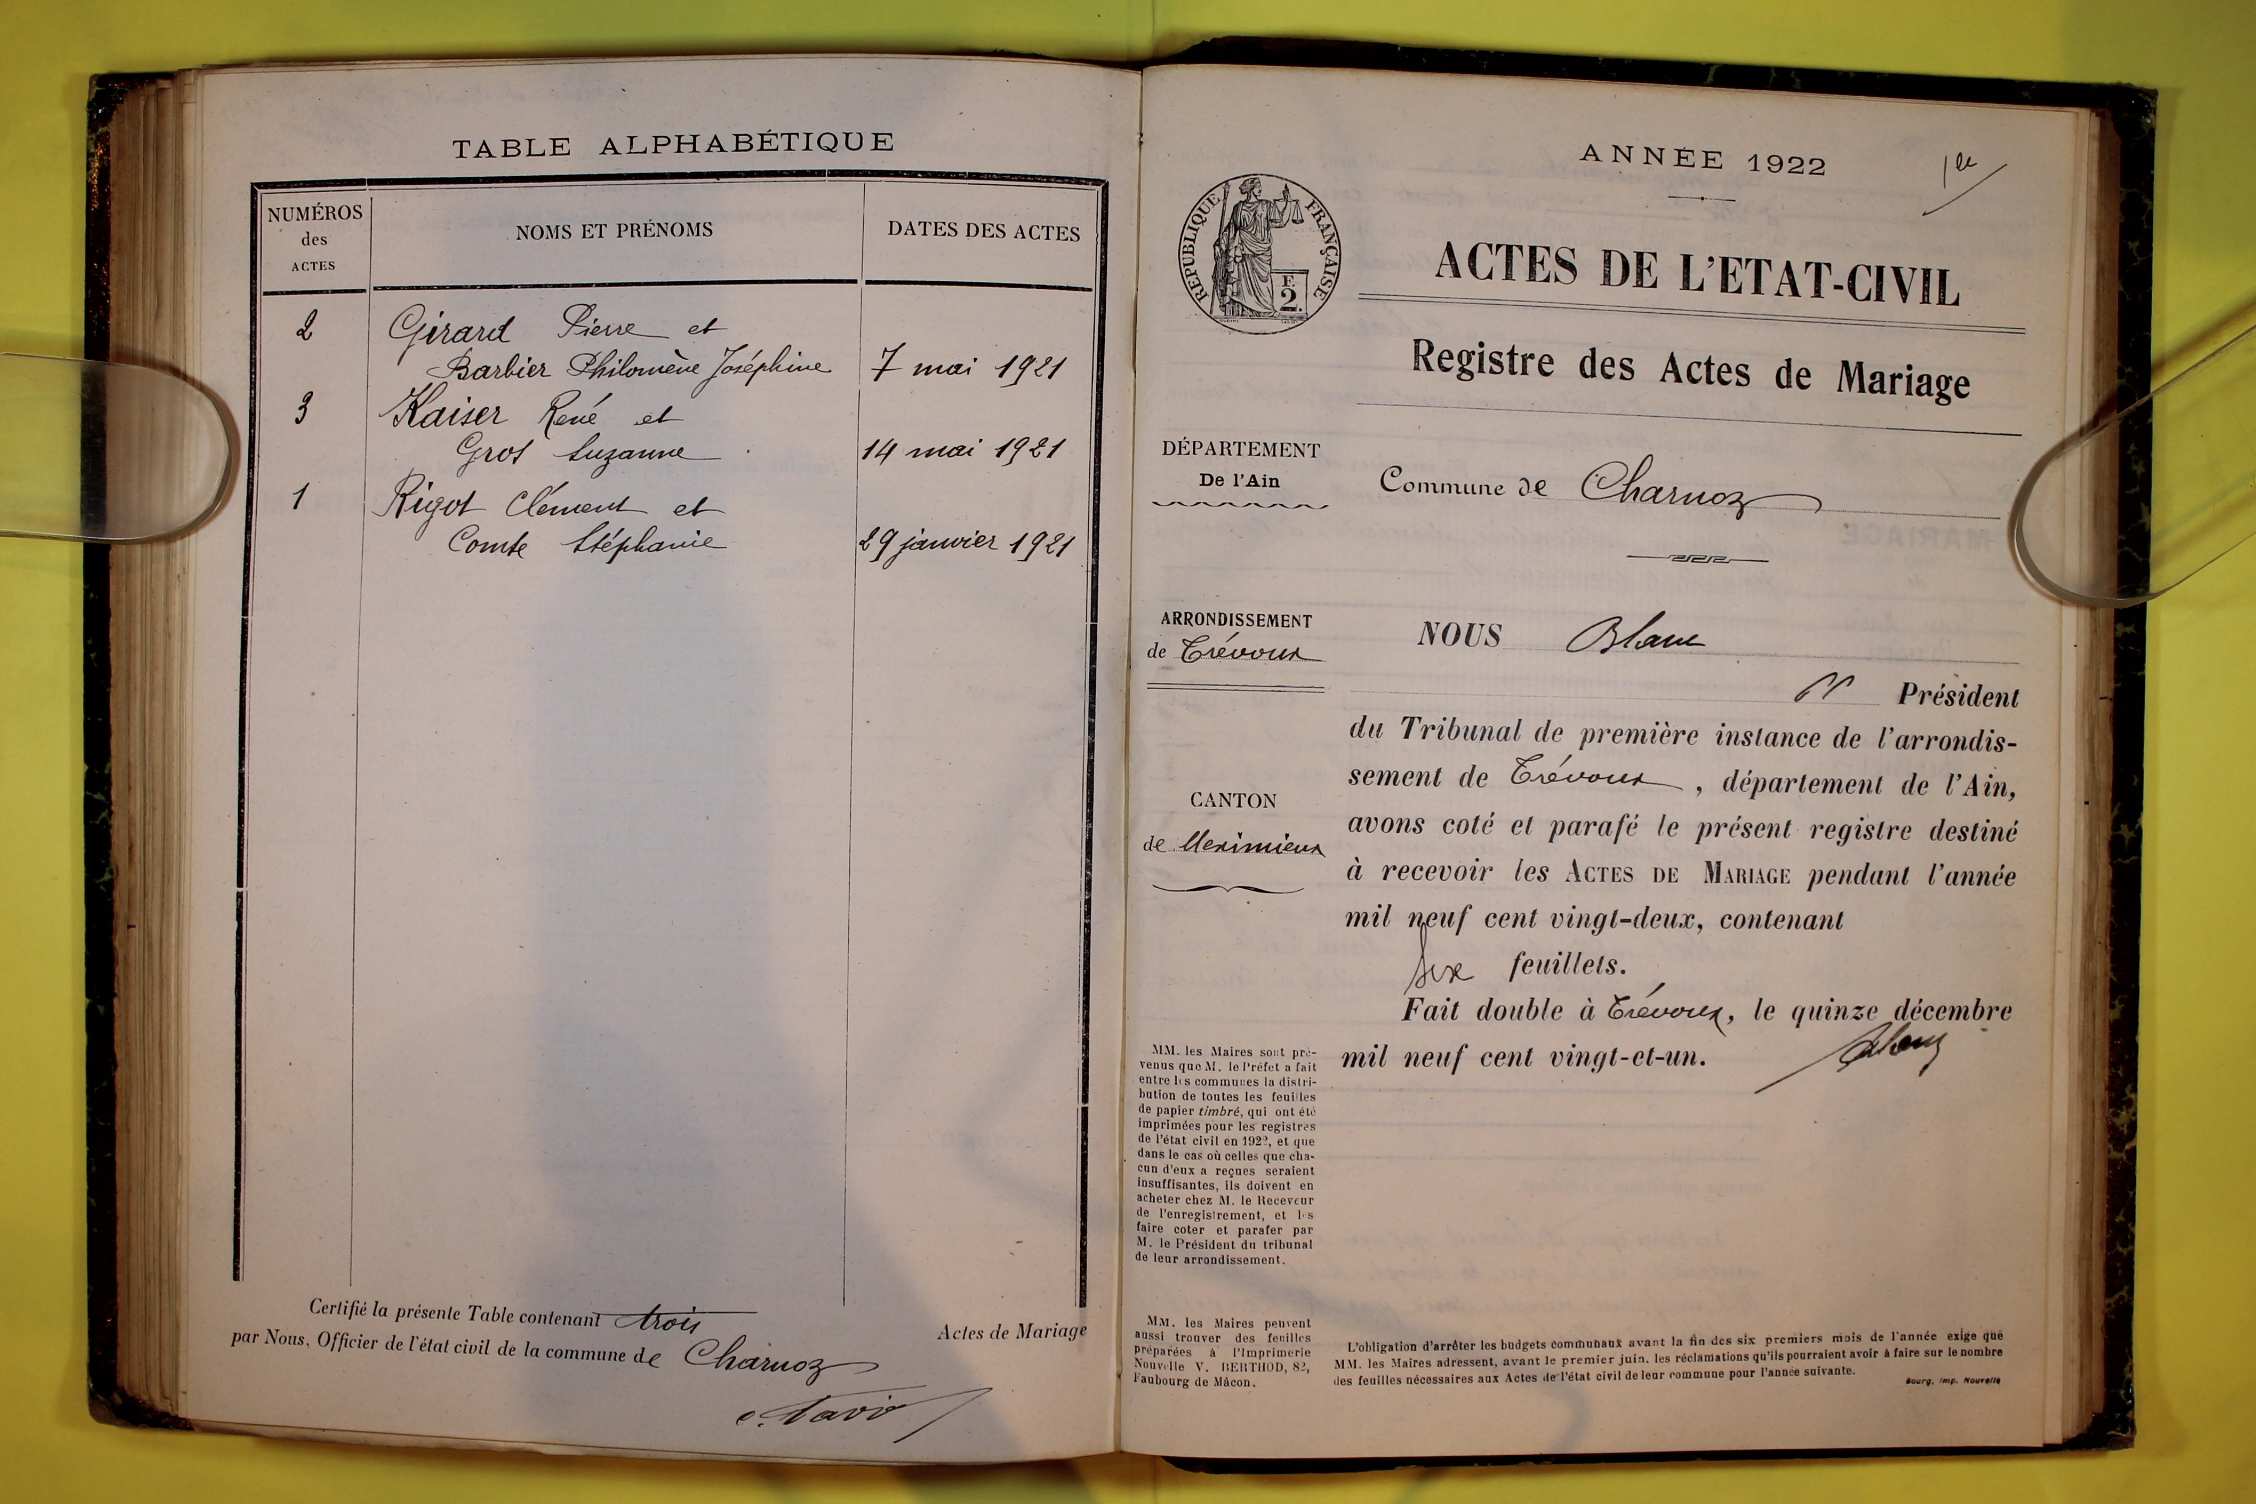 TABLE ALPHABÉTIQUE
NUMÉROS
des
ACTES
NOMS ET PRÉNOMS
DATES DES ACTES
2 Girard Pierre et
Barbier Philomène Joséphine 7 mai 1921
3 Kaiser René et
Gros Suzanne 14 mai 1921
1 Rigot Clément et
Comte Stéphanie 29 janvier 1921
Certifié la présente Table contenant trois
Actes de Mariage
par Nous, Officier de l'état civil de la commune de Charnoz
ANNÉE 1922
1er
RÉPUBLIQUE FRANÇAISE
F.
2.
ACTES DE L'ETAT-CIVIL
Registre des Actes de Mariage
DÉPARTEMENT
De l'Ain
Commune de Charnoz
ARRONDISSEMENT
de Trévoux
CANTON
de Meximieux
NOUS Blanc
Président
du Tribunal de première instance de l'arrondis-
sement de Trévoux, département de l'Ain,
avons coté et parafé le présent registre destiné
à recevoir les ACTES DE MARIAGE pendant l'année
mil neuf cent vingt-deux, contenant
six feuillets.
Fait double à Trévoux, le quinze décembre
mil neuf cent vingt-et-un.
MM. les Maires sont pré-
venus que M. le Préfet a fait
entre les communes la distri-
bution de toutes les feuilles
de papier timbré, qui ont été
imprimées pour les registres
de l'état civil en 1922, et que
dans le cas où celles que cha-
cun d'eux a reçues seraient
insuffisantes, ils doivent en
acheter chez M. le Receveur
de l'enregistrement, et les
faire coter et parafer par
M. le Président du tribunal
de leur arrondissement.
MM. les Maires peuvent
aussi trouver des feuilles
préparées à l'Imprimerie
Nouvelle V. BERTHOD, 82,
Faubourg de Mâcon.
L'obligation d'arrêter les budgets communaux avant la fin des six premiers mois de l'année exige que
MM. les Maires adressent, avant le premier juin, les réclamations qu'ils pourraient avoir à faire sur le nombre
des feuilles nécessaires aux Actes de l'état civil de leur commune pour l'année suivante.
Bourg, Imp. Nouvelle